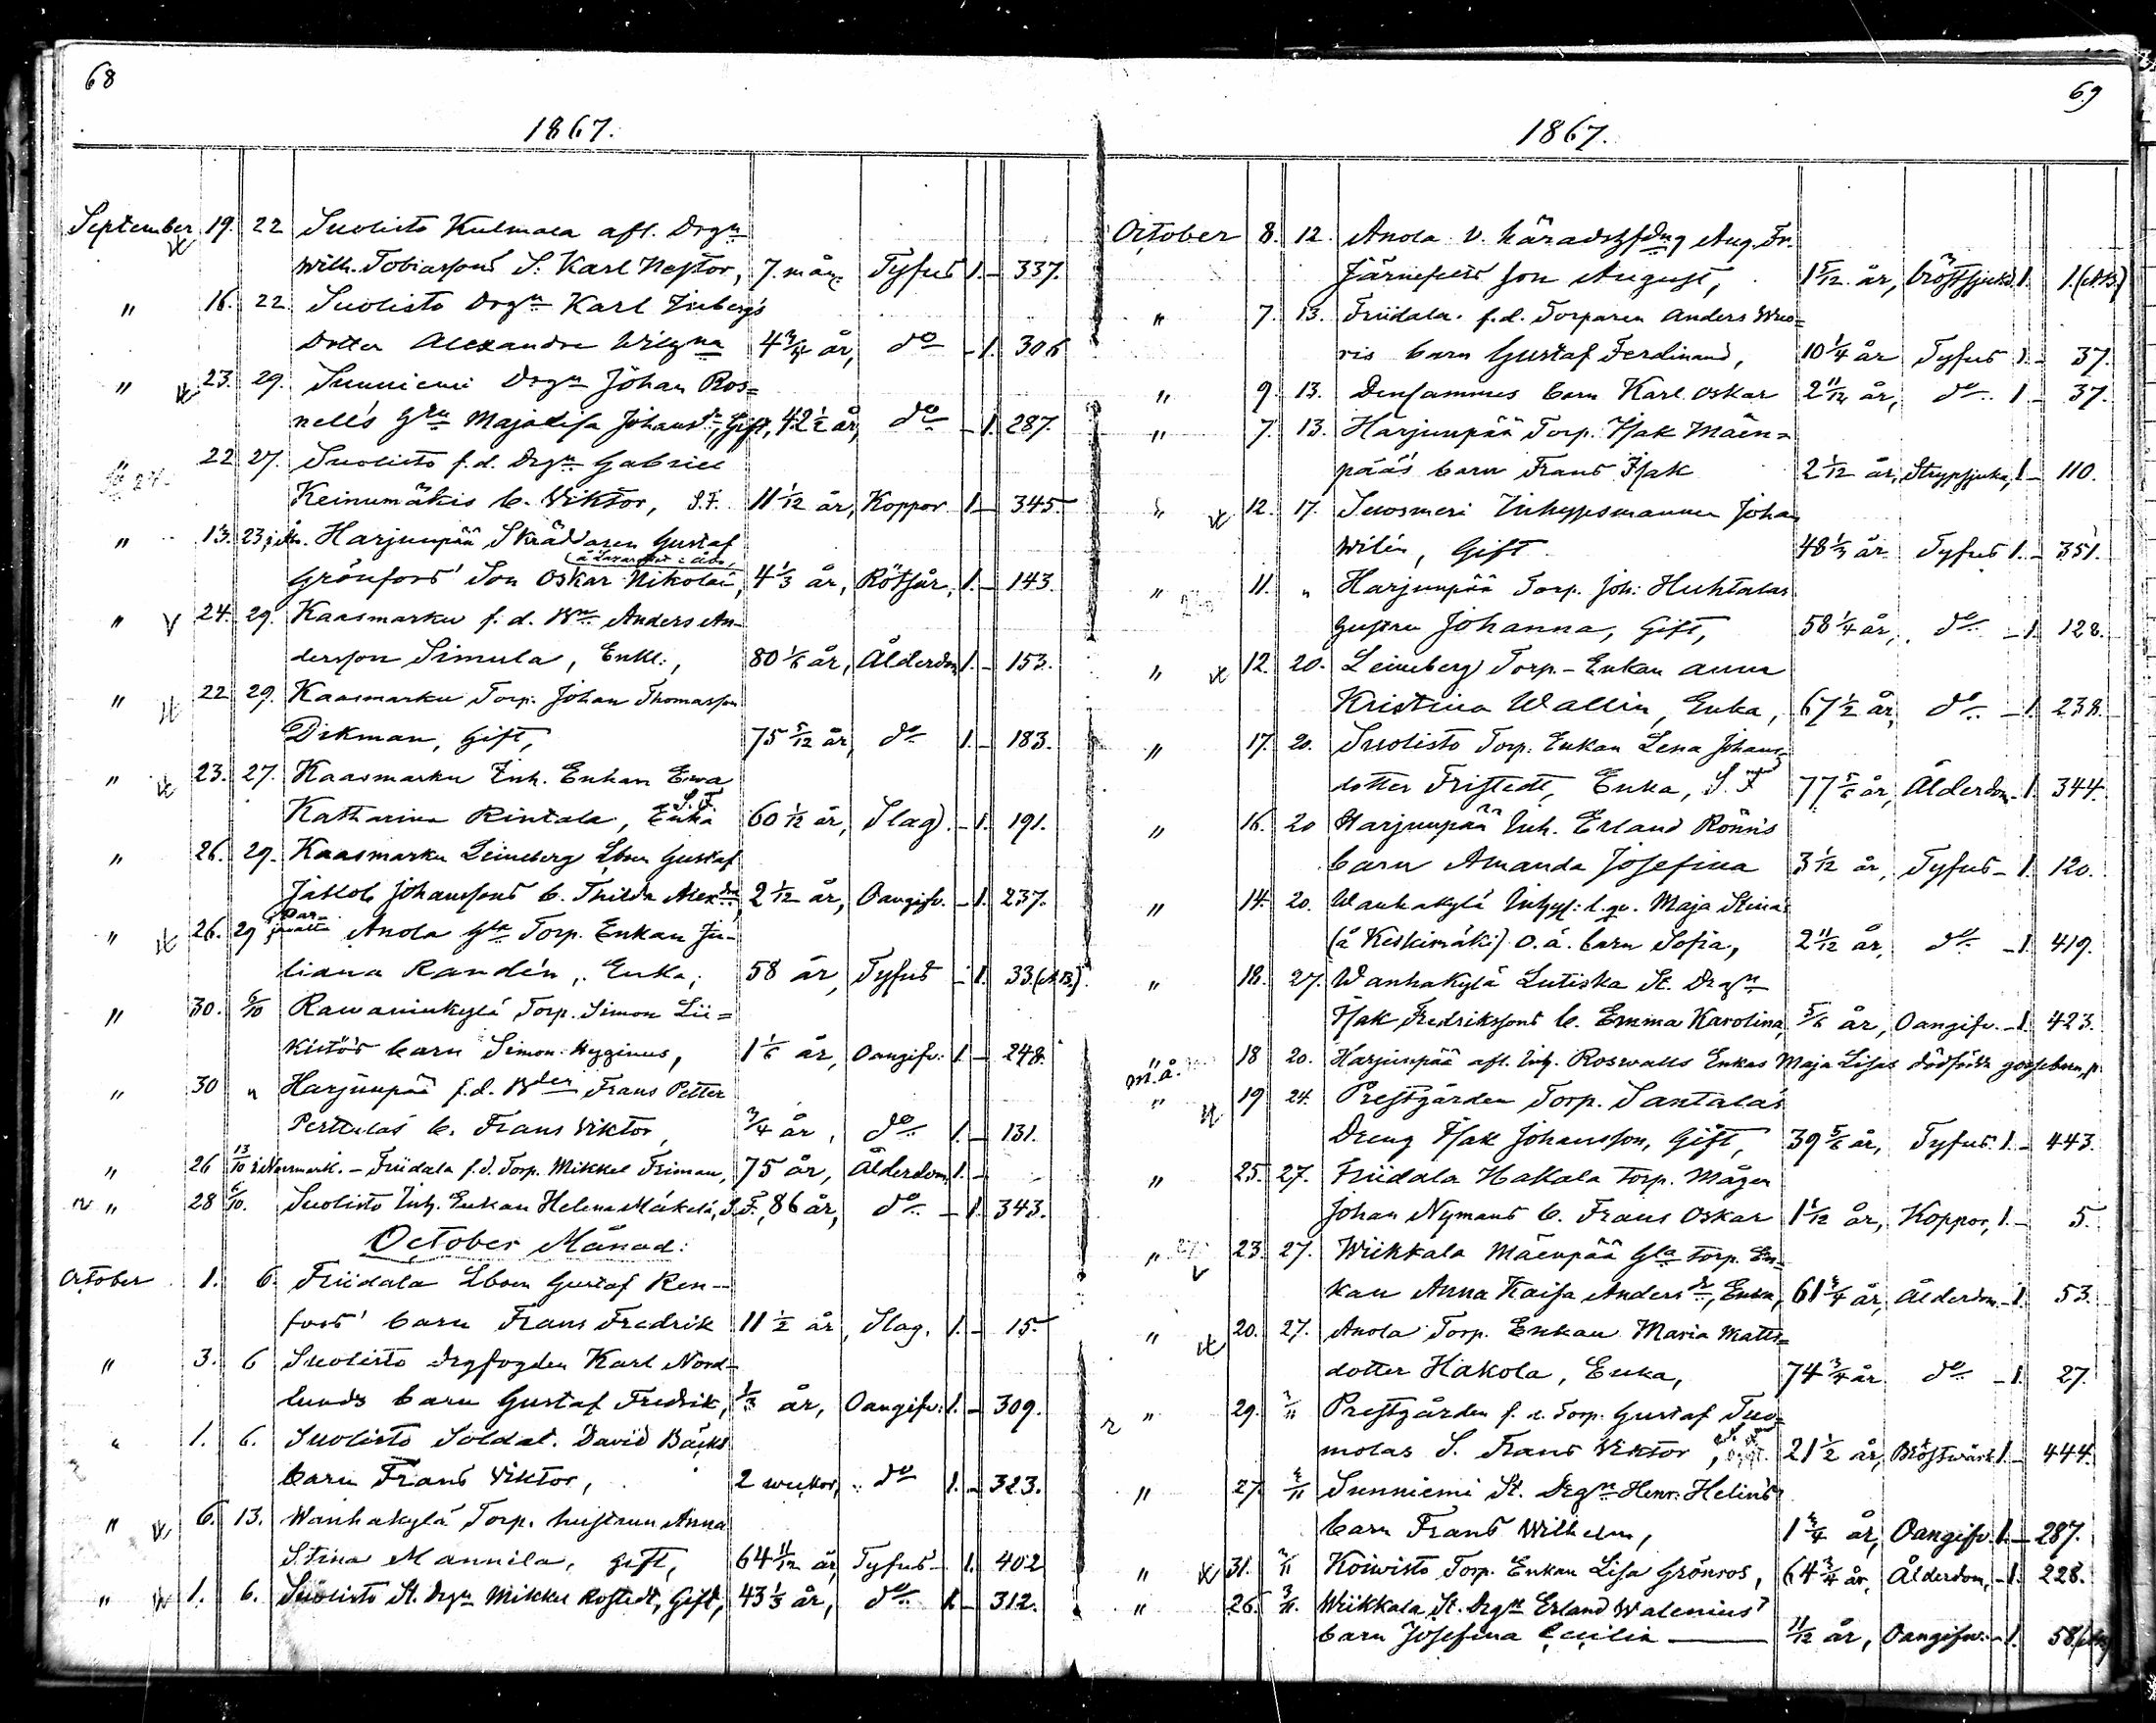 68
1867.
September 19. 22 Suolisto Kulmala afl. Drgn
Wilh. Tobiassons S. Karl Nestor, 7. mån. Tyfus 1. – 337.
" 16. 22. Suolisto Drgn Karl Inbergs
dotter Alexandra Wilgma 4 3/4 år, do – 1. 306
" 23. 29. Sunniemi Drgn Johan Ros=
nell's Gru Majalisa Johansdr, Gift, 42 1/2 år, do – 1. 287.
" 22 27. Suolisto f.d. Drgn Gabriel
Keinumäkis b. Viktor, S.F. 11 1/12 år, Koppor 1 – 345.
" 13. 23 i Åbo. Harjunpää Skräddaren Gustaf
(å Lazarettet i Åbo,
Grönfors' Son Oskar Nikolai, 4 1/3 år, Rötsår, 1. – 143.
" 24. 29. Kaasmarku f.d. Bn Anders An-
dersson Simula, Enkl., 80 1/6 år, Ålderdom 1. – 153.
" 22 29. Kaasmarku Torp. Johan Thomasson
Dikman, Gift, 75 5/12 år, do 1. – 183.
" 23. 27. Kaasmarku Inh. Enkan Ewa
Katharina Rintala, Enka S.F. 60 1/12 år, Slag. – 1. 191.
" 26. 29. Kaasmarku Leineberg Lbon Gustaf
Jakob Johanssons b. Thilda Alexdra, 2 1/12 år, Oangifv. – 1. 237.
" 26. 29 Anola Gla Torp. Enkan Ju-
liana Randén, Enka, 58 år, Tyfus – 1. 33.(A.B.)
" 30. 6/10 Rawaninkylä Torp. Simon Lii=
kistö's barn Simon Hyginus, 1 1/6 år, Oangifv: 1. – 248.
" 30 " Harjunpää f.d. Bder Frans Petter
Perttulas b. Frans Viktor, 3/4 år, do 1. – 131.
" 26 13/10 i Norrmark. – Friidala f.d. Torp. Mikkel Friman, 75 år, Ålderdom 1. –
" 28 6/10. Suolisto Inh. Enkan Helena Mäkelä, S.F., 86 år, do – 1. 343.
October Månad:
October 1. 6. Friidala Lbon Gustaf Ren-
fors' barn Frans Fredrik 11 1/2 år, Slag. 1. – 15.
" 3. 6 Suolisto Drgfogden Karl Nord-
lunds barn Gustaf Fredrik, 1/3 år, Oangifv: 1. – 309.
" 1. 6. Suolisto Soldat. David Bäcks
barn Frans Viktor, 2 weckor, do 1. – 323.
" 6. 13. Wanhakylä Torp. hustrun Anna
Stina Mannila, Gift, 64 11/12 år, Tyfus – 1. 402
" 1. 6. Suolisto St. Drgn Mikkel Rostedt, Gift, 43 1/3 år, do 1 – 312.
69
1867.
October 8. 12. Anola v. häradshfdng Aug. Fr.
Järnefelts son August, 1 5/12 år, bröstsjukd. 1. 1.(A.B.)
" 7. 13. Friidala f.d. Torparen Anders Wuo=
ris barn Gustaf Ferdinand, 10 1/4 år Tyfus 1. – 37.
" 9. 13. Densammes barn Karl Oskar 2 11/12 år, do 1 – 37.
" 7. 13. Harjunpää Torp. Isak Mäen=
pää's barn Frans Isak 2 1/12 år, Strypsjuka, 1 – 110.
" 12. 17. Suosmeri Inhysesmannen Johan
Wilén, Gift 48 1/3 år Tyfus 1. – 351.
" 11. " Harjunpää Torp. Joh: Huhtalas
hustru Johanna, Gift, 58 1/4 år, do – 1. 128.
" 12. 20. Leineberg Torp.-Enkan Anna
Kristina Wallin, Enka, 67 1/2 år, do – 1. 238.
" 17. 20. Suolisto Torp. Enkan Lena Johans
dotter Fristedt, Enka, S.F. 77 5/6 år, Ålderdom – 1. 344.
" 16. 20 Harjunpää Inh. Erland Rönns
barn Amanda Josefina 3 1/12 år, Tyfus – 1. 120.
" 14. 20. Wanhakylä Inhys: l. qv. Maja Stinas
(å Keskimäki) o.ä. barn Sofia, 2 11/12 år, do – 1. 419.
" 18. 27. Wanhakylä Lutiska St. Drgn
Isak Fredrikssons b. Emma Karolina, 5/6 år, Oangifv. – 1. 423.
" 18 20. Harjunpää afl. Inh. Roswalls Enkas Maja Lisas dödfödda gossebarn,
" 19 24. Prestgården Torp. Santalas
Dreng Isak Johansson, Gift, 39 5/6 år, Tyfus. 1. – 443.
" 25. 27. Friidala Hakala Torp. Mågen
Johan Nymans b. Frans Oskar 1 1/12 år, Koppor, 1. – 5.
" 23. 27. Wiikkala Mäenpää Gla Torp. En-
kan Anna Kaisa Andersdr, Enka, 61 3/4 år, Ålderdom – 1. 53.
" 20. 27. Anola Torp. Enkan Maria Matts=
dotter Hakola, Enka, 74 3/4 år do – 1. 27.
" 29. 3/11 Prestgården f.d. Torp. Gustaf Tuo-
molas S. Frans Viktor, 21 1/2 år, Bröstwärk 1. – 444.
" 27 3/11 Sunniemi St. Drgn Henr. Helins
barn Frans Wilhelm, 1 3/4 år, Oangifv. 1. – 287.
" 31. 3/11 Koiwisto Torp. Enkan Lisa Grönros, 64 3/4 år, Ålderdom, – 1. 228.
" 26. 3/11. Wiikkala St. Drgn Erland Walenius'
barn Josefina Cecilia — 11/12 år, Oangifv. – 1. 58.